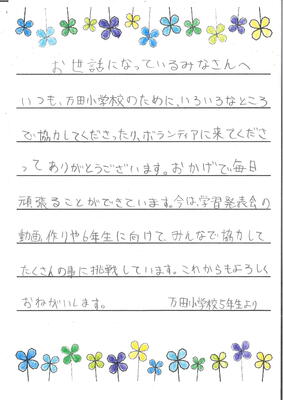 お世話になっているみなさんへ
いつも、万田小学校のために、いろいろなところ
で協力してくださったり、ボランティアに来てくださ
ってありがとうございます。おかげで、毎日
頑張ることができています。今は、学習発表会の
動画作りや6年生に向けて、みんなで協力して
たくさんの事に挑戦しています。これからもよろしく
おねがいします。 万田小学校5年生より